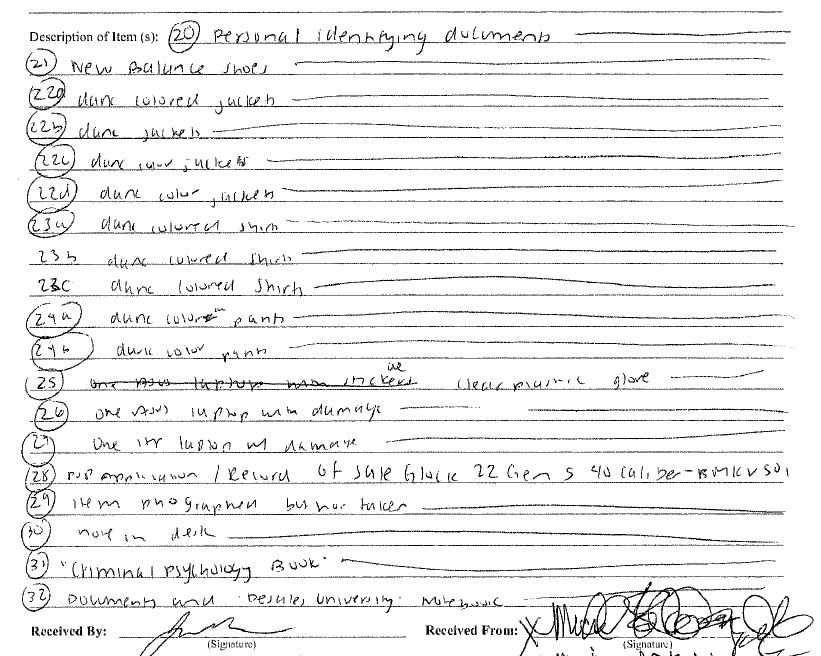 Description of Item (s): 20 Personal identifying documents
21 New Balance shoes
22a dark colored jackets
22b dark jackets
22c dark color jackets
22d dark color jackets
23a dark colored shirts
23b dark colored shirts
23c dark colored shirts
24a dark color pants
24b dark color pants
25 one Asus laptop with stickers clear plastic glove
26 one Asus laptop with damage
27 One laptop w/ damage
28 Application / Record Of Sale Glock 22 Gen 5 40 caliber - BMKV501
29 item phographed but not taken
30 note in desk
31 "Criminal Psychology Book"
32 Documents and Desales University Notebook
Received By: Received From: X
(Signature) (Signature)